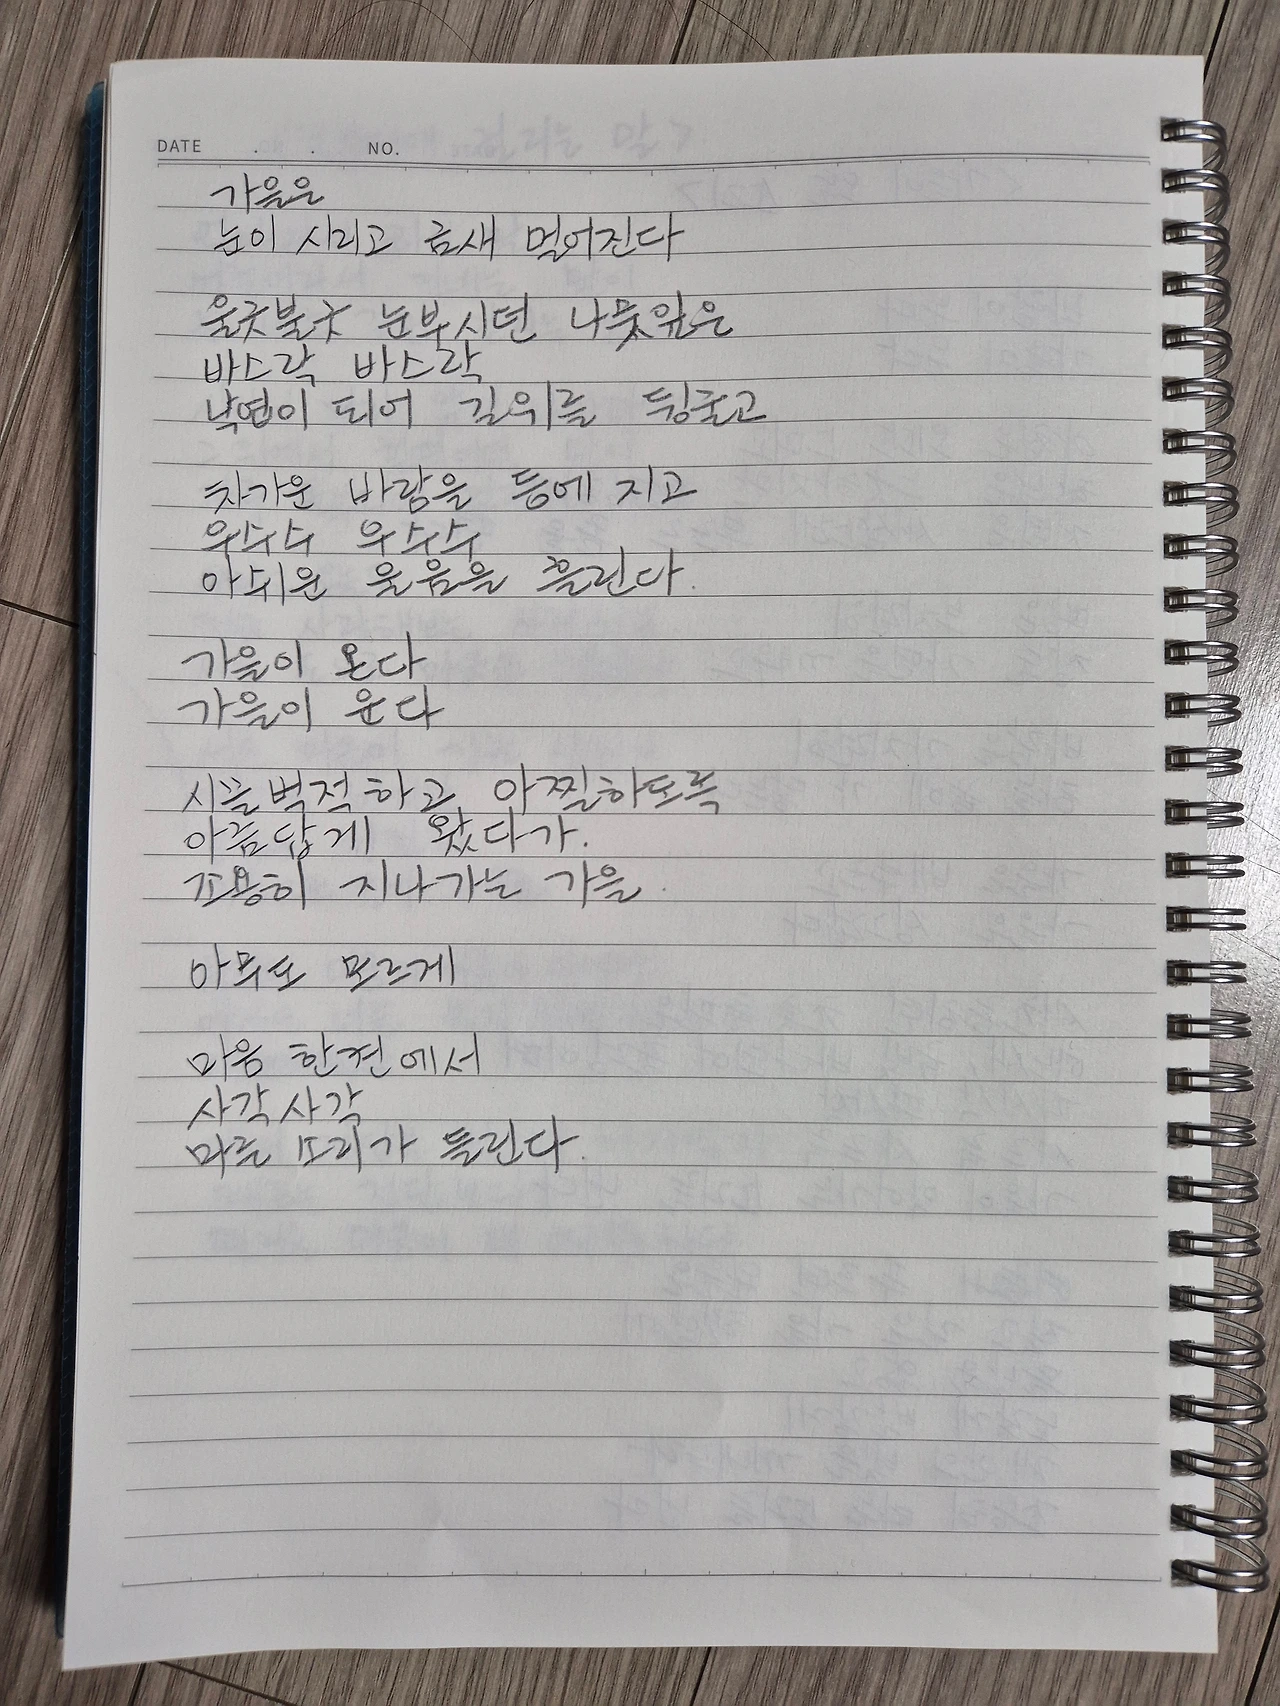 DATE . . NO.
가을은
눈이 시리고 금새 멀어진다
울긋불긋 눈부시던 나뭇잎은
바스락 바스락
낙엽이 되어 길위를 뒹굴고
차가운 바람을 등에 지고
우수수 우수수
아쉬운 울음을 흘린다.
가을이 온다
가을이 운다
시끌벅적하고 아찔하도록
아름답게 왔다가.
조용히 지나가는 가을.
아무도 모르게
마음 한켠에서
사각사각
마른 소리가 들린다.